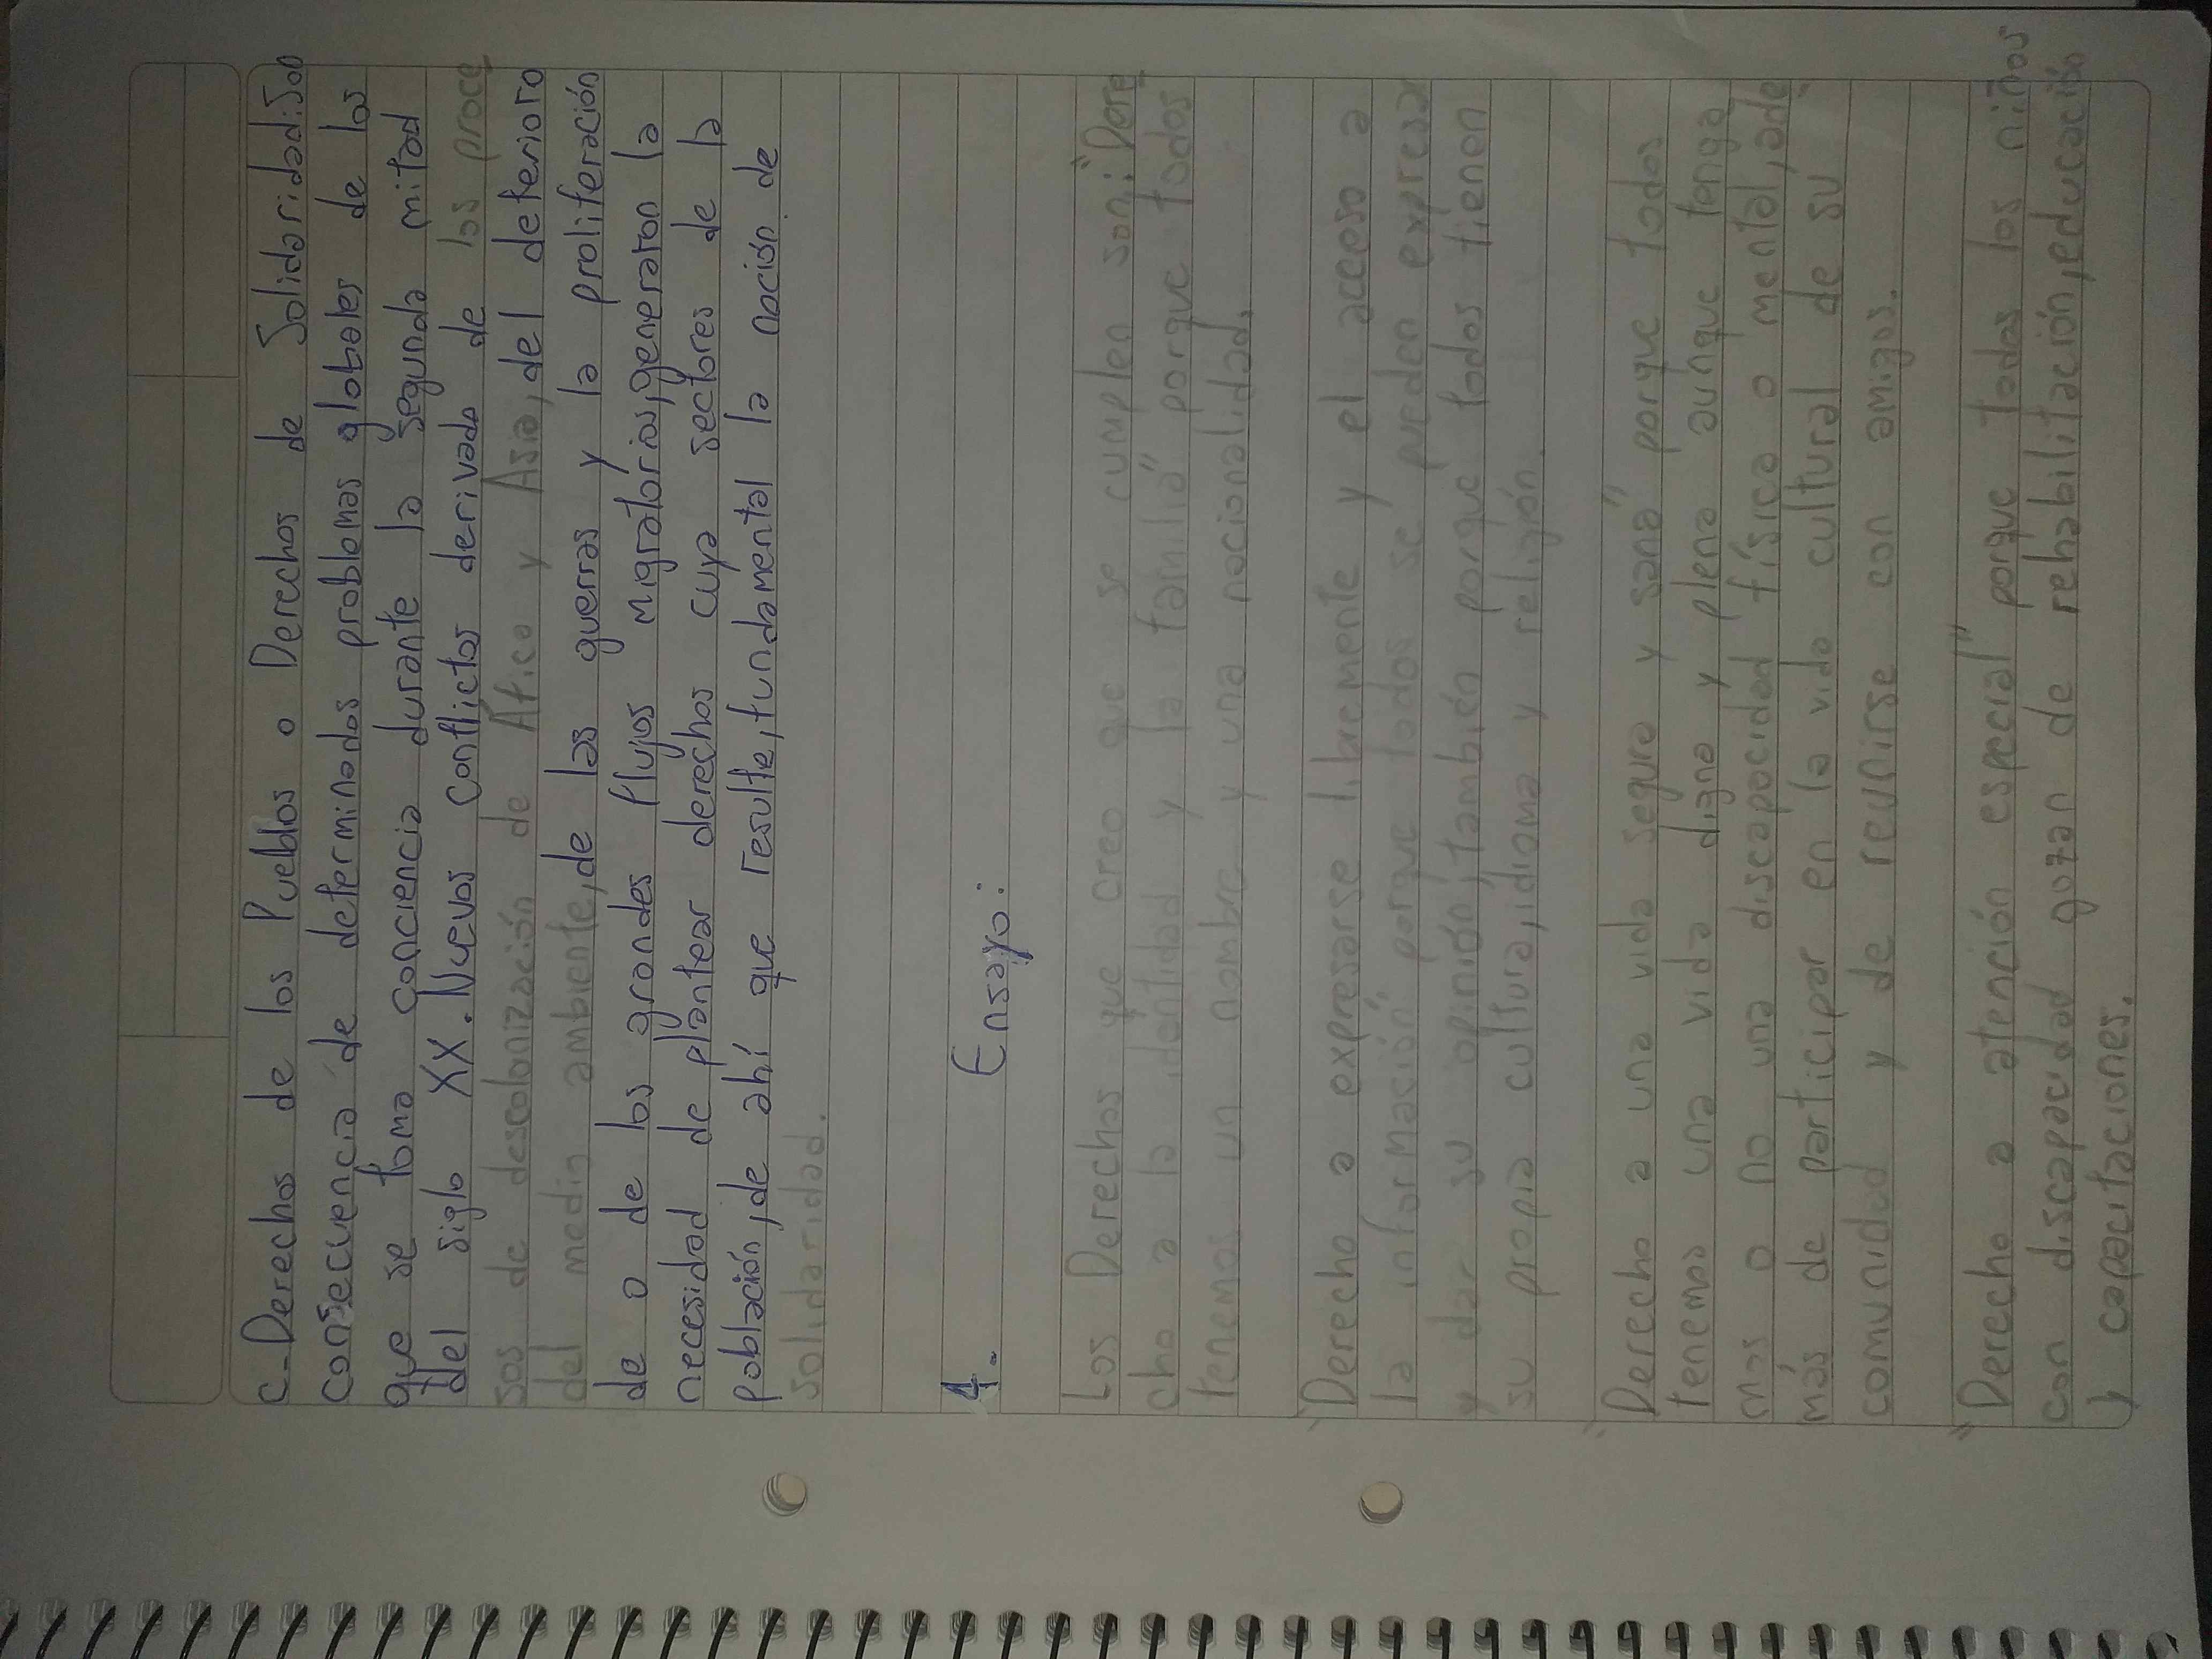 c-Derechos de los Pueblos o Derechos de Solidaridad: Son
consecuencia de determinados problemas globales de los
que se toma conciencia durante la segunda mitad
del siglo XX. Nuevos conflictos derivada de los proce
sos de descolonización de África y Asia, del deterioro
del medio ambiente, de las guerras y la proliferación
de o de los grandes flujos migratorios, generaron la
necesidad de plantear derechos cuya sectores de la
población, de ahí que resulte, fundamental la noción de
solidaridad.
4. Ensayo:
Los Derechos que creo que se cumplen son: "Dere
cho a la identidad y la familia" porque todos
tenemos un nombre y una nacionalidad.
"Derecho a expresarse libremente y el acceso a
la información" porque todos se pueden expresar
y dar su opinión, también porque todos tienen
su propia cultura, idioma y religión.
"Derecho a una vida segura y sana" porque todos
tenemos una vida digna y plena aunque tenga
mos o no una discapacidad física o mental, ade
más de participar en la vida cultural de su
comunidad y de reunirse con amigos.
"Derecho a atención especial" porque todos los niños
con discapacidad gozan de rehabilitación, educación
y capacitaciones.